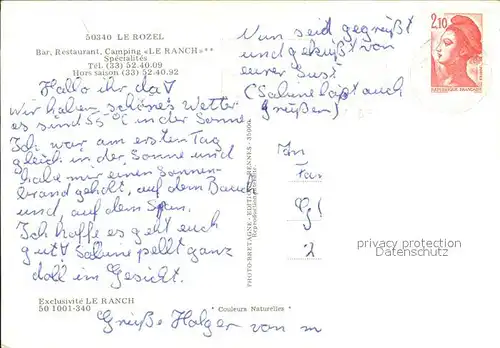 50340 LE ROZEL
Bar, Restaurant, Camping «LE RANCH»**
Spécialités
Tél. (33) 52.40.09
Hors saison (33) 52.40.92
Hallo ihr da!
Wir haben schönes Wetter
es sind 55 °C in der Sonne
Ich war am ersten Tag
gleich in der Sonne und
habe mir einen Sonnen-
brand geholt, auf dem Bauch
und, auf dem
Ich hoffe es geht euch
gut! Sabine pellt ganz
doll im Gesicht.
Exclusivité LE RANCH
50 1001-340
Grüße Holger von m
Nun seid gegrüßt
und geküßt von
eurer Susi
(Sabine läßt auch
Grüßen)
2,10
RÉPUBLIQUE FRANÇAISE
PHOTO-BRETAGNE - EDITIONS - RENNES - 35000
Reproduction interdite
Fa
G
privacy protection
Datenschutz
" Couleurs Naturelles "